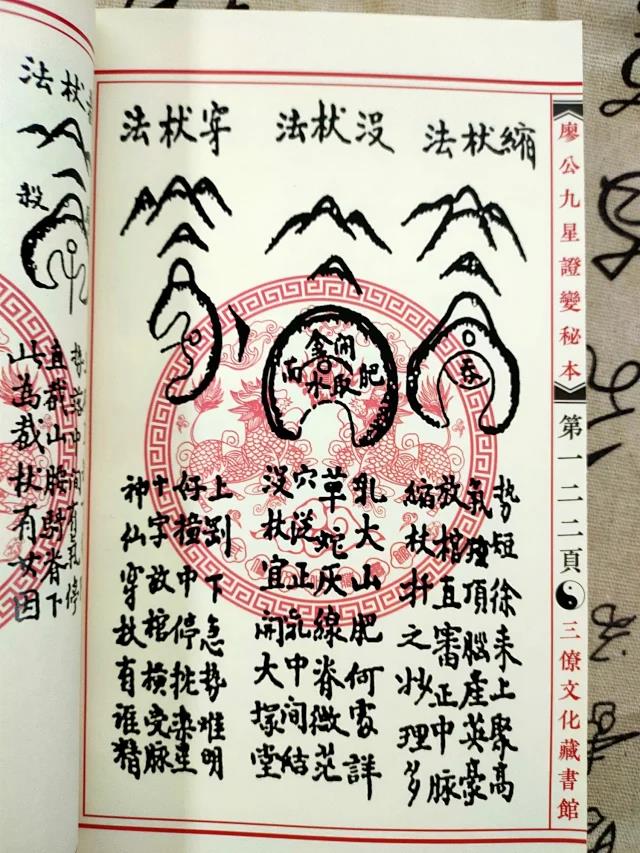 廖公九星證變秘本
第一二二頁
三僚文化藏書館
縮杖法
吞
勢短徐來上聚高
氣頂腦產英豪
放棺直審正中脈
縮杖扦之妙理多
沒杖法
開金取水
肥
乳大山肥何處詳
草蛇灰線脊微茫
穴從正乳中間結
沒杖宜開大塚堂
穿杖法
上下急勢难明
仔撞中停挑
十字放棺橫受脈
神仙穿杖有誰精
杖法
殺
中間有氣停
直截山腰脊下
此為截杖有因